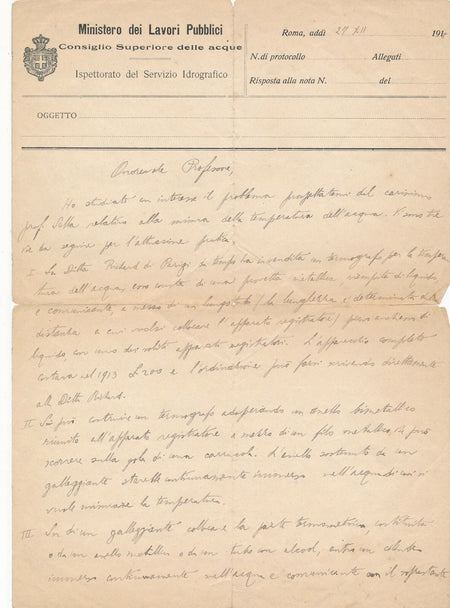 Ministero dei Lavori Pubblici
Consiglio Superiore delle acque
Ispettorato del Servizio Idrografico
Roma, addì 27 XII 191
N. di protocollo Allegati
Risposta alla nota N. del
OGGETTO
Onorevole Professore,
Ho studiato con interesse il problema prospettatomi dal carissimo
prof. relativo alla misura della temperatura dell'acqua. Vi sono tre
vie da seguire per l'attuazione pratica.
I La Ditta Richard di Parigi da tempo ha in vendita un termografo per la tempera
tura dell'acqua, esso consta di una provetta metallica, riempita di liquido
e comunicante, a mezzo di un lungo tubo (la lunghezza è determinata dalla
distanza a cui vuolsi collocare l'apparato registratore) pieno anch'esso di
liquido, con uno dei soliti apparati registratori. L'apparecchio completo
costava nel 1913 £ 200 e l'ordinazione può farsi scrivendo direttamente
alla Ditta Richard.
II Si può costruire un termografo adoperando un anello bimetallico
riunito all'apparato registratore a mezzo di un filo metallico, che può
scorrere sulla gola di una carrucola. L'anello sostenuto da un
galleggiante starebbe continuamente immerso nell'acqua di cui si
vuole misurare la temperatura.
III Su di un galleggiante collocare la parte termometrica, costituita
o da un anello metallico o da un tubo con alcool, entro un
immerso continuamente nell'acqua e comunicante con il